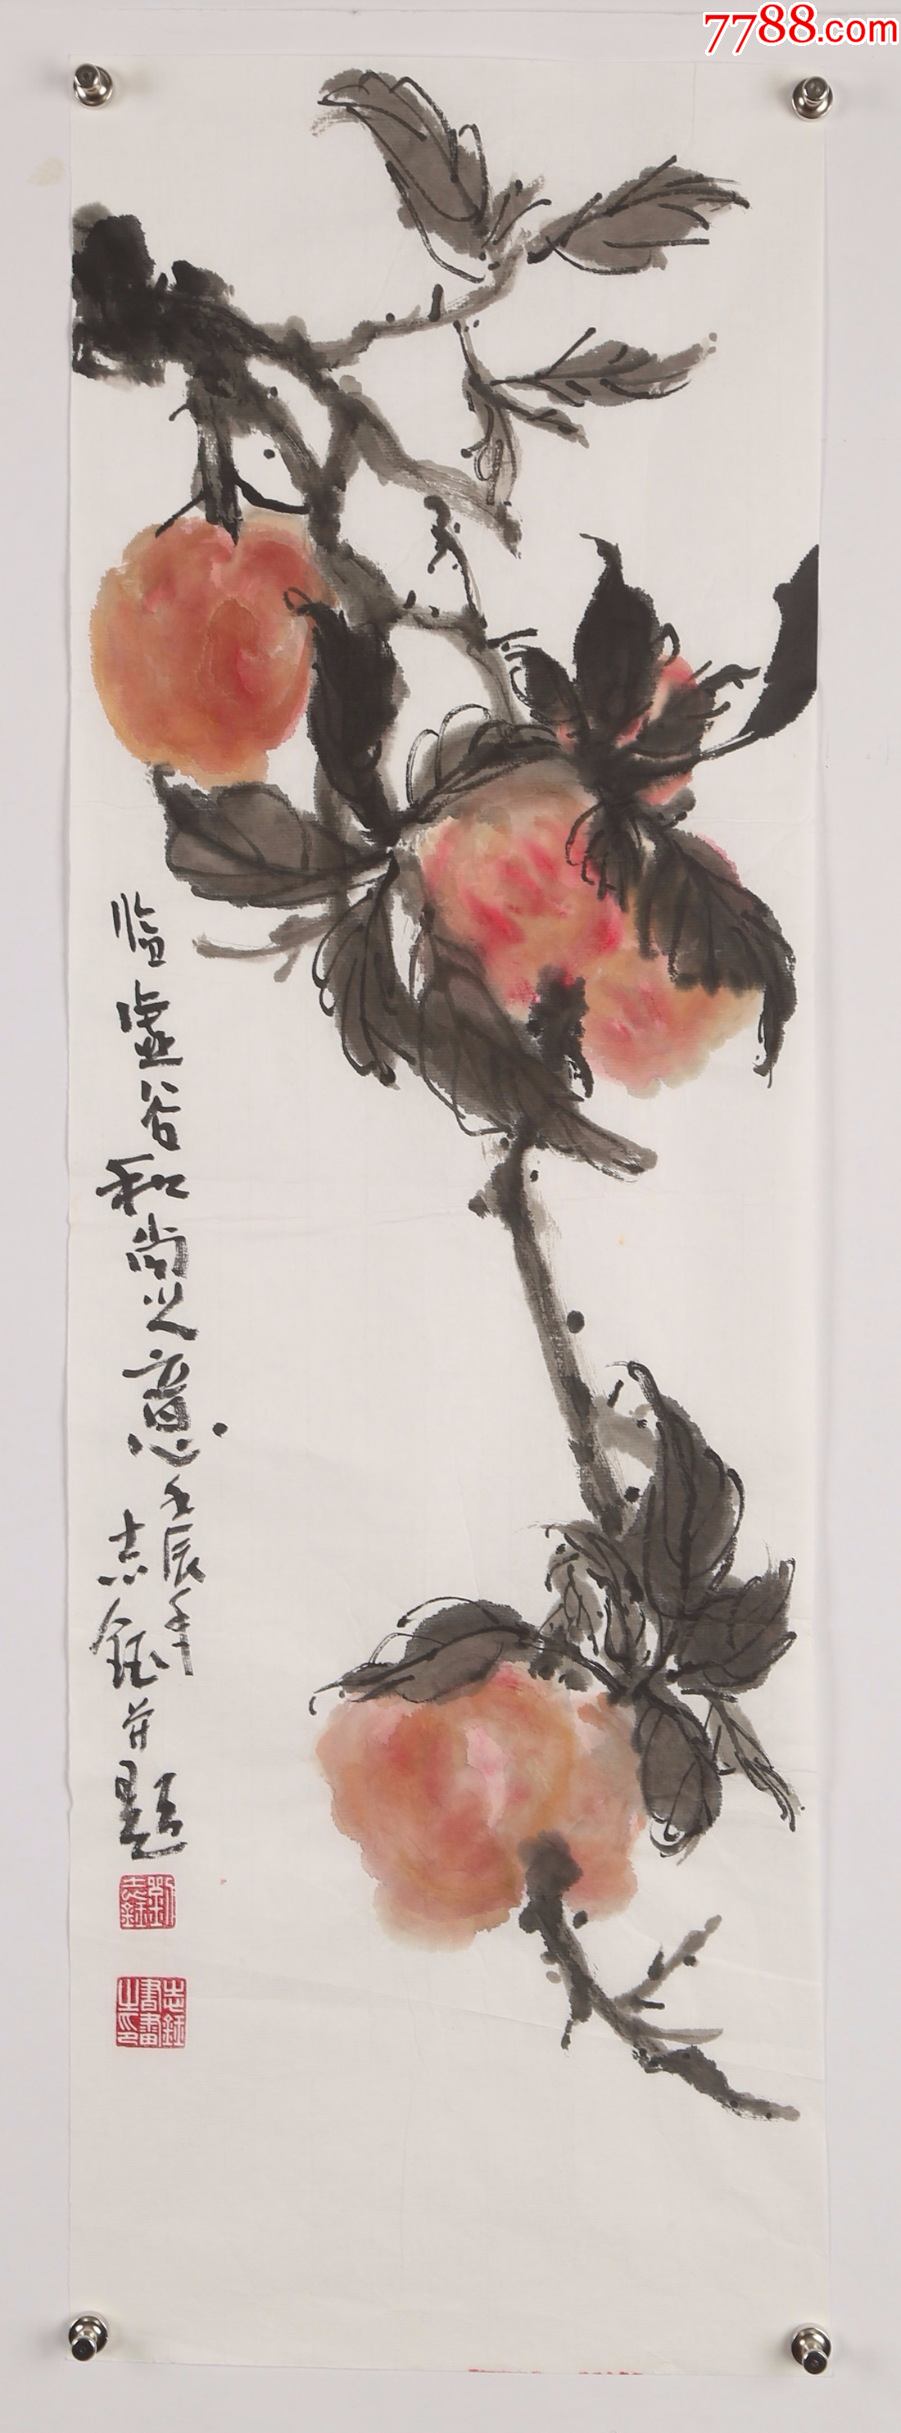 7788.com
临虚谷和尚之意
壬辰年
志钰并题
刘志钰
志钰书画之印